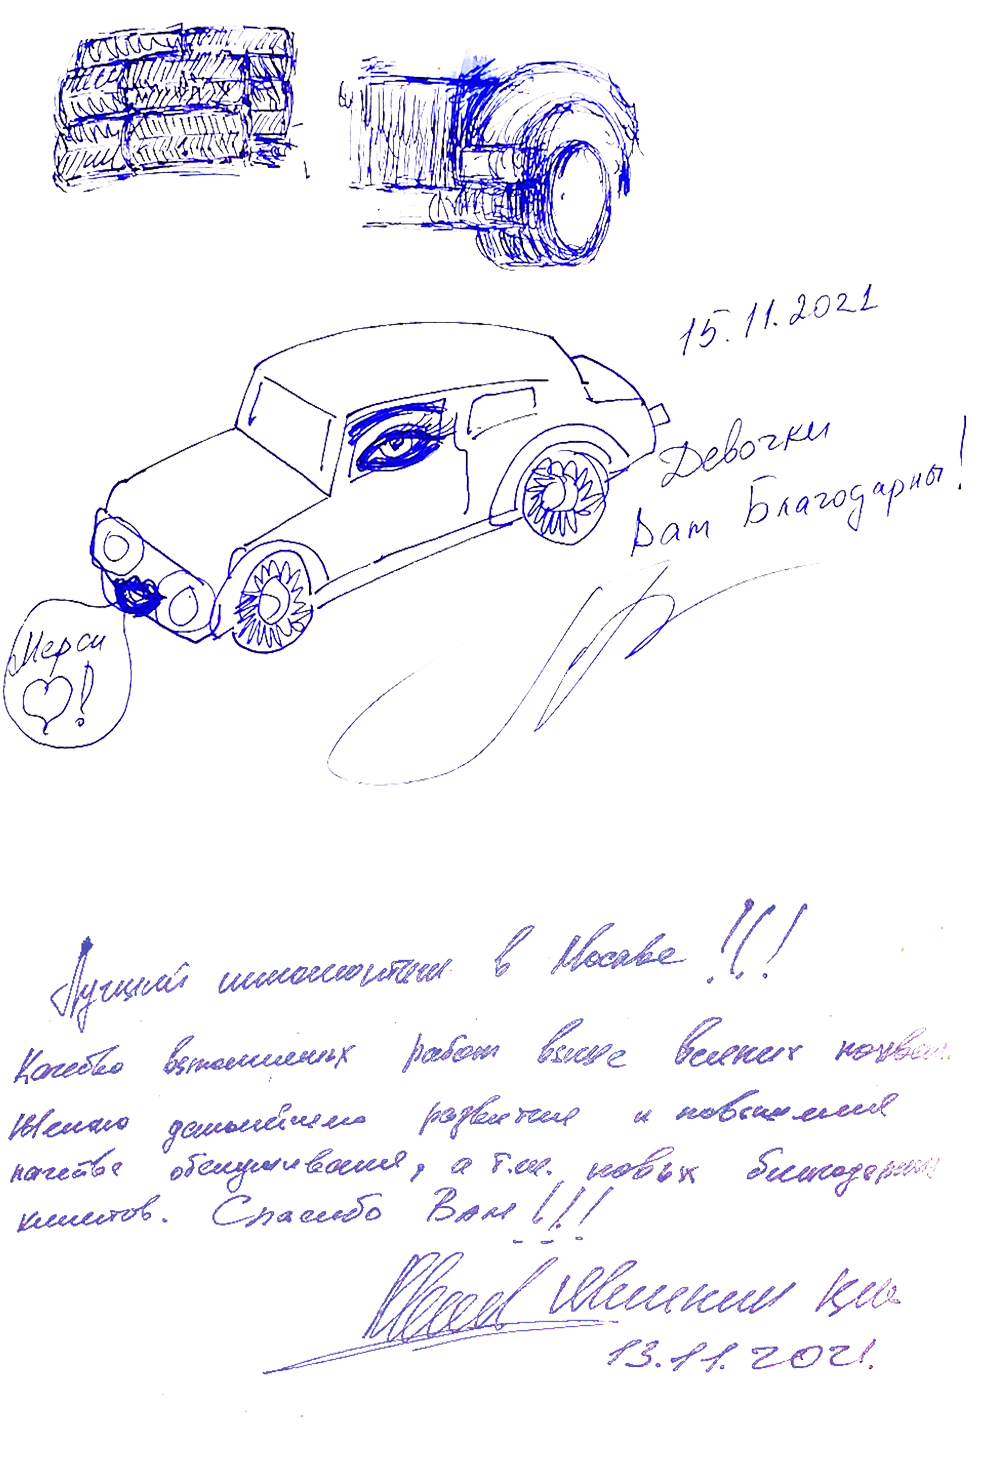 15.11.2021
Девочки
Вам Благодарны!
Мерси
!
Лучший шиномонтаж в Москве !!!
Качество выполненных работ выше всяких похвал.
Желаю дальнейшего развития и повышения
качества обслуживания, а т.ж. новых благодарных
клиентов. Спасибо Вам !!!
13.11.2021.